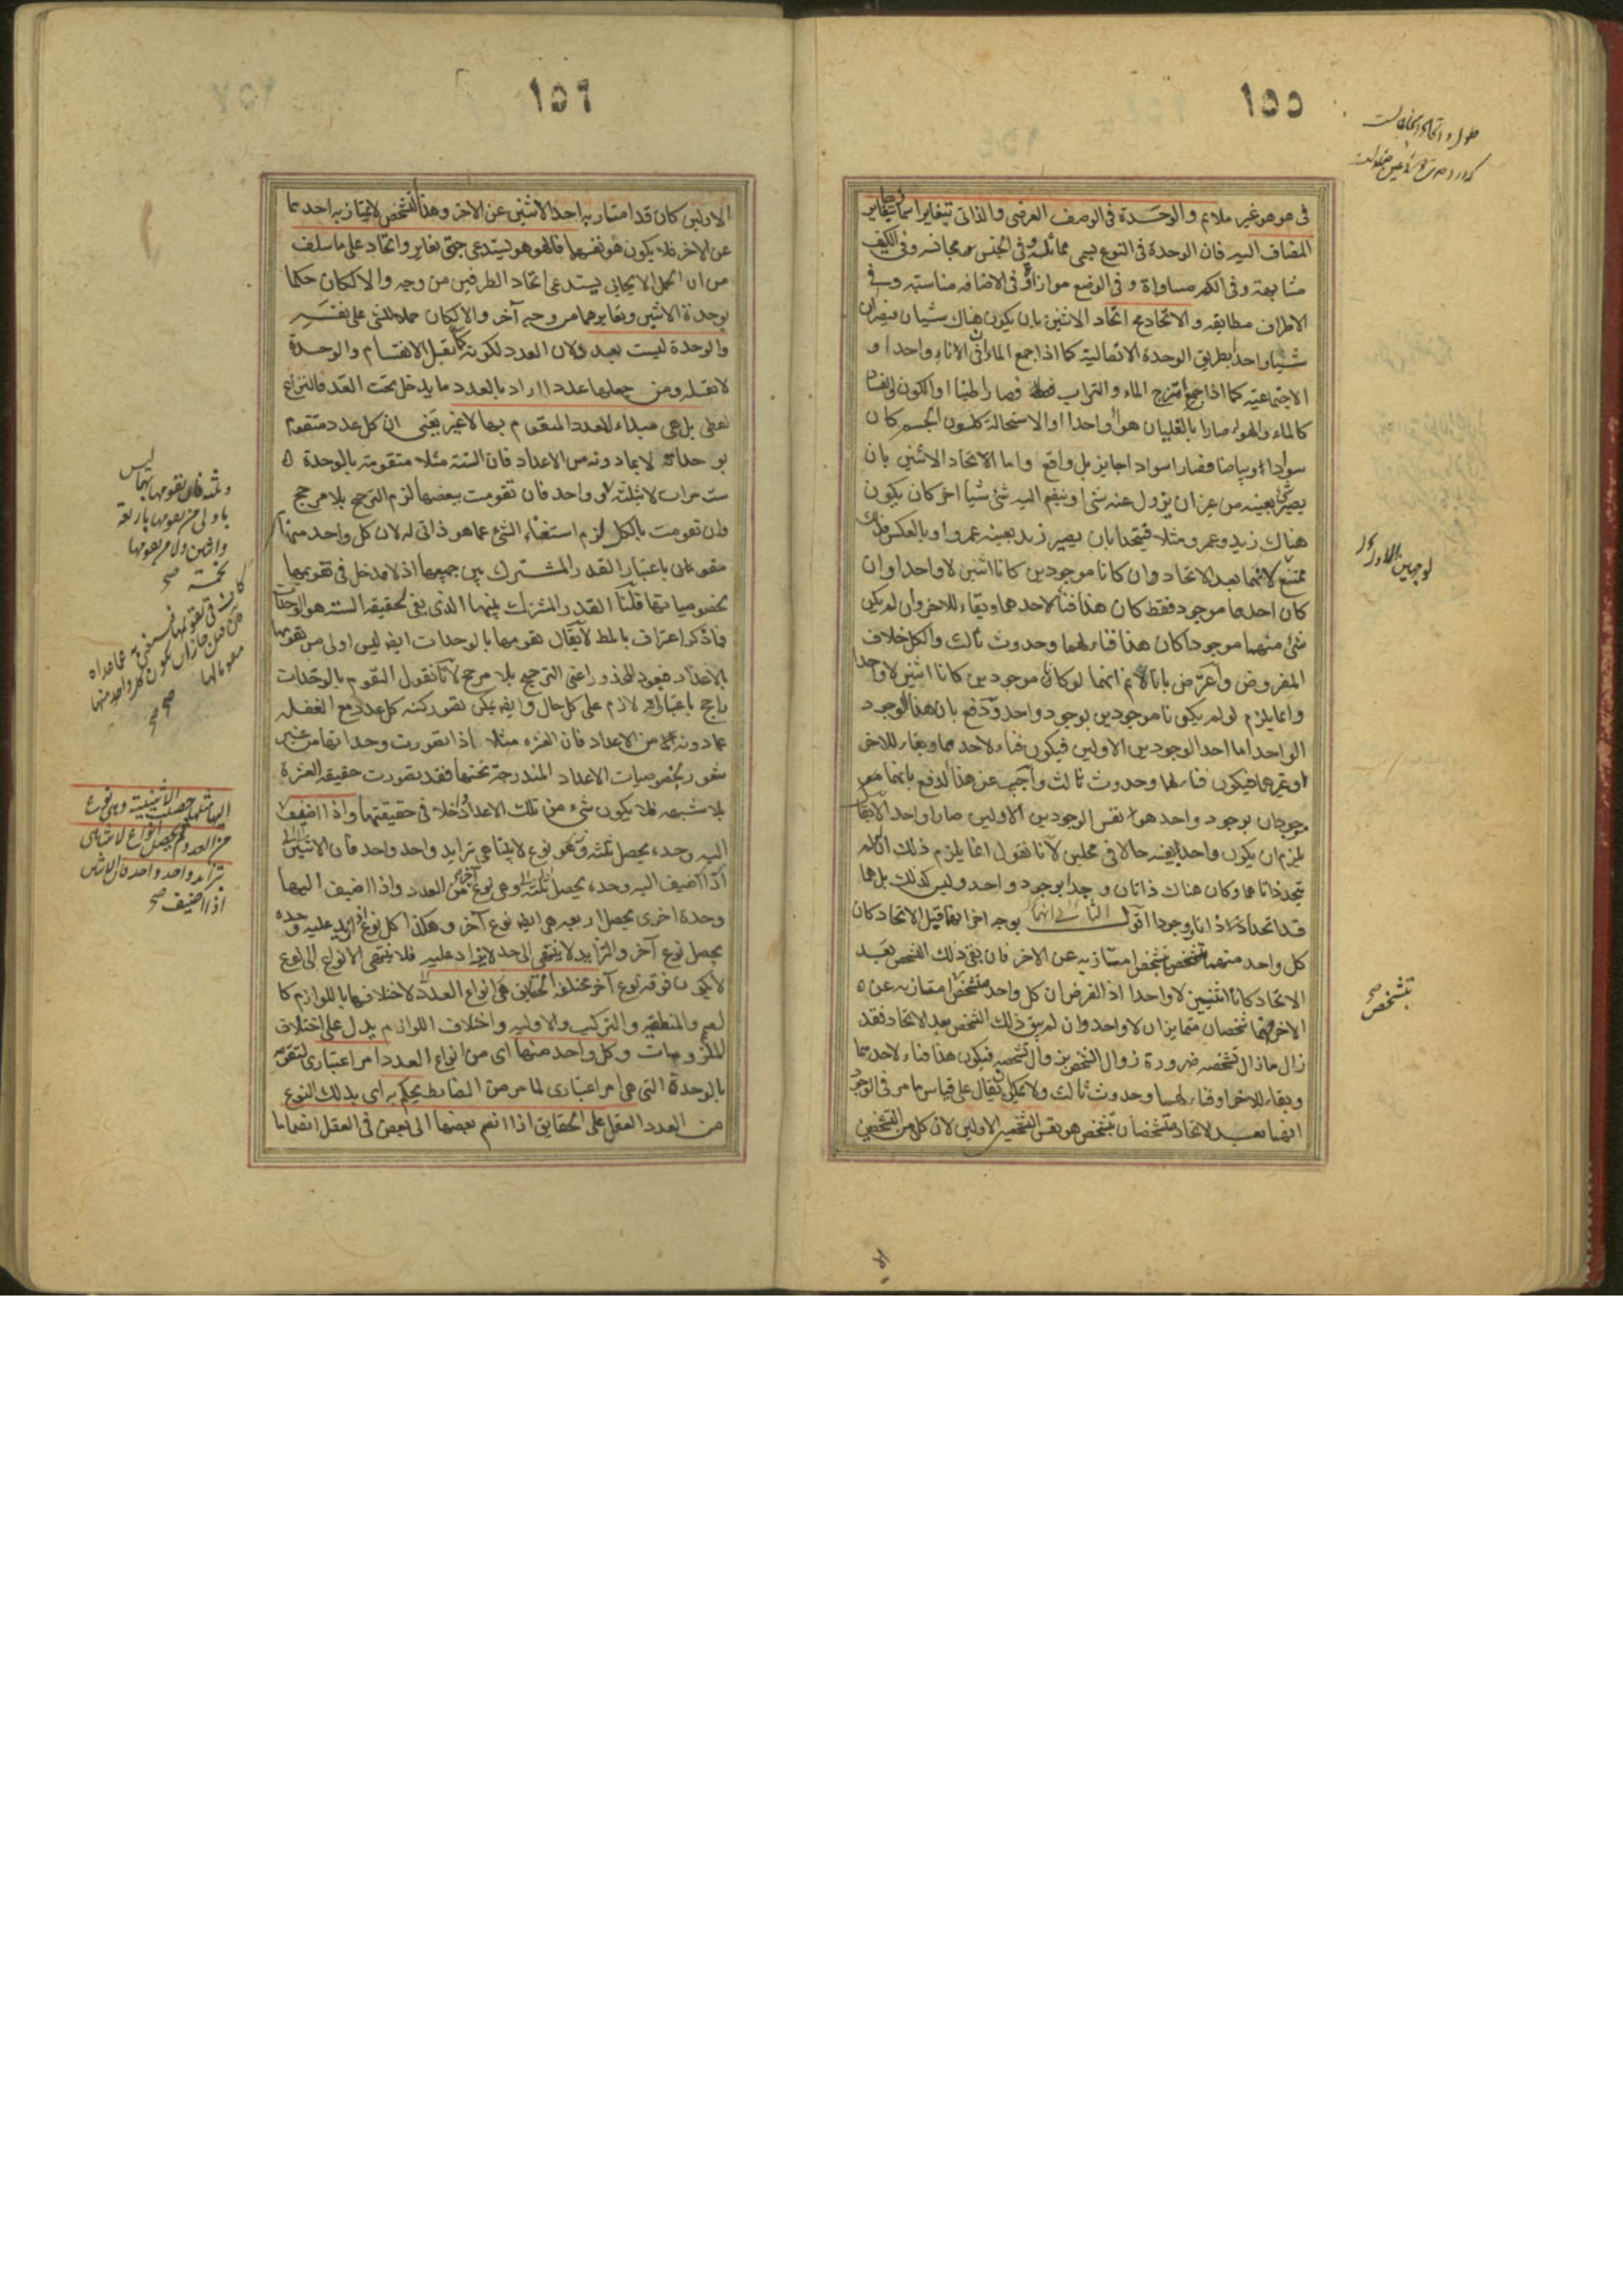 ١٥٥
فى هو هو غير ملايم والوحدة فى الوصف العرضى والذاتى يتغاير اسماؤها بتغاير
المضاف اليه فان الوحدة فى النوع يسمى مماثلة وفى الجنس مجانسه وفى الكيف
مشابهة وفى الكم مساواة وفى الوضع موازاة وفى الاضافه مناسبه وفى
الاطراف مطابقه والاتحاد مح اتحاد الاثنين بان يكون هناك شيئان فيصيران
شيئا واحدا بطريق الوحدة الاتصالية كما اذا جمع الماءان فى الاناء واحد او
الاجتماعيه كما اذا امتزج الماء والتراب فصارا طينا او الكون والفساد
كالماء والهواء صارا بالغليان هواء واحدا او الاستحالة كلون الجسم كان
سوادا وبياضا فصار اسوادا جايز بل واقع واما الاتحاد الاثنين بان
يصير شئ بعينه من غير ان يزول عنه شئ او ينضم اليه شئ شيئا اخر كان يكون
هناك زيد وعمرو مثلا فيتحدا بان يصير زيد بعينه عمروا او بالعكس فذلك
ممتنع لانهما بعد الاتحاد وان كانا موجودين كانا اثنين لا واحدا وان
كان احدهما موجود فقط كان هذا فناء لاحدهما وبقاء للاخر وان لم يكن
شئ منهما موجودا كان هذا فناء لهما وحدوث ثالث والكل خلاف
المفروض واعترض بانا لانم انهما لو كانا موجودين كانا اثنين لا واحدا
وانما يلزم لو لم يكونا موجودين بوجود واحد ودفع بان هذا الوجود
الواحد اما احد الوجودين الاولين فيكون فناء لاحدهما وبقاء للاخر
او غيرهما فيكون فناء لهما وحدوث ثالث واجيب عن هذا الدفع بانهما مو
جودان بوجود واحد هو نفس الوجودين الاولين صارا واحد لا يقال
يلزم ان يكون واحد بعينه حالا فى محلين لانا نقول انما يلزم ذلك ان لم
يتحد ذاتاهما وكان هناك ذاتان وجدا بوجود واحد وليس كذلك بل هما
قد اتحدا ذاتا ووجودا اقول بوجه اخر انما قيل الاتحاد كان
كل واحد منهما متشخص بتشخص امتاز به عن الاخر فان بقى ذلك التشخص بعد
الاتحاد كانا اثنين لا واحدا اذ الفرض ان كل واحد متشخص امتاز به عن
الاخر فهما شخصان متمايزان لا واحد وان لم يبق ذلك التشخص بعد الاتحاد فقد
زال ما زال تشخصه ضرورة زوال الشخص بزوال تشخصه فيكون هذا فناء لاحدهما
وبقاء للاخر او فناء لهما وحدوث ثالث ولا يمكن ان يقال على قياس ما مر فى الوجود
انهما بعد الاتحاد متشخصان بتشخص هو نفس التشخصين الاولين لان كل من التشخصين
لوجهين الاول
بتشخص صح
١٥٦
الاولين كان قد امتاز به احد الاثنين عن الاخر وهذا التشخص لا يمتاز به احدهما
عن الاخر فلا يكون هو نفسهما فالهو هو يستدعى جهتى تغاير واتحاد على ما سلف
من ان الحمل الايجابى يستدعى اتحاد الطرفين من وجه والا لكان حكما
بوحدة الاثنين وتغايرهما من وجه آخر والا لكان حملا للشئ على نفسه
والوحدة ليست بعدد لان العدد لكونه كما يقبل الانقسام والوحدة
لا تقبله ومن جعلها عددا اراد بالعدد ما يدخل تحت العد فالنزاع
لفظى بل هى مبداء للعدد المتقوم بها لا غير يعنى ان كل عدد متقوم
بوحداته لا بما دونه من الاعداد فان الستة مثلا متقومة بالوحدة
ست مرات لا بثلثة وثلثة فان تقومت ببعضها لزم الترجيح بلا مرجح
وان تقومت بالكل لزم استغناء الشئ عما هو ذاتى له لان كل واحد منها
مقوم باعتبار القدر المشترك بين جميعها اذ لا مدخل فى تقويمها
بخصوصياتها قلنا القدر المشترك بينهما الذى يفى لحقيقه الستة هو الوحدات
فما ذكر اعتراف بالمط لا يقال تقومها بالوحدات ايضا ليس اولى من تقومها
بالاعداد فيعود المحذور اعنى الترجيح بلا مرجح لانا نقول التقوم بالوحدات
راجح باعتبار انه لازم على كل حال وايضا يمكن تصور كنه كل عدد مع الغفله
عما دونه من الاعداد فان العشرة مثلا اذا تصورت وحداتها من غير
شعور بخصوصيات الاعداد المندرجة تحتها فقد تصورت حقيقه العشرة
بلا شبهه فلا يكون شئ من تلك الاعداد داخلا فى حقيقتها واذا اضيف
اذا اضيف اليه وحدة يحصل ثلثة وهى نوع آخر من العدد واذا اضيف اليها
وحدة اخرى يحصل اربعه هى ايضا نوع آخر وهكذا كل نوع اذا زيد عليه وحدة
يحصل نوع آخر والتزايد لا ينتهى الى حد لا يزاد عليه فلا ينتهى الانواع الى نوع
لا يكون فوقه نوع آخر مختلفة الحقايق هى انواع العدد لاختلافها باللوازم كا
لصمم والمنطقيه والتركيب والاوليه واختلاف اللوازم يدل على اختلاف
الملزومات وكل واحد منها اى من انواع العدد امر اعتبارى لتقومه
بالوحدة التى هى امر اعتبارى لما مر من الضابط يحكم به اى بذلك النوع
من العدد العقل على الحقايق اذا انضم بعضها الى بعض فى العقل انضماما
وثلثة فان تقومها بهما ليس
باولى من تقومها باربعة
واثنين ولا من تقومها
بخمسة
اليها مثلها حصلت الاثنينية وهى نوع
من العدد ثم يحصل انواع لا يتناهى
بتزايد واحد واحد فان الاثنين
اذا اضيف صح